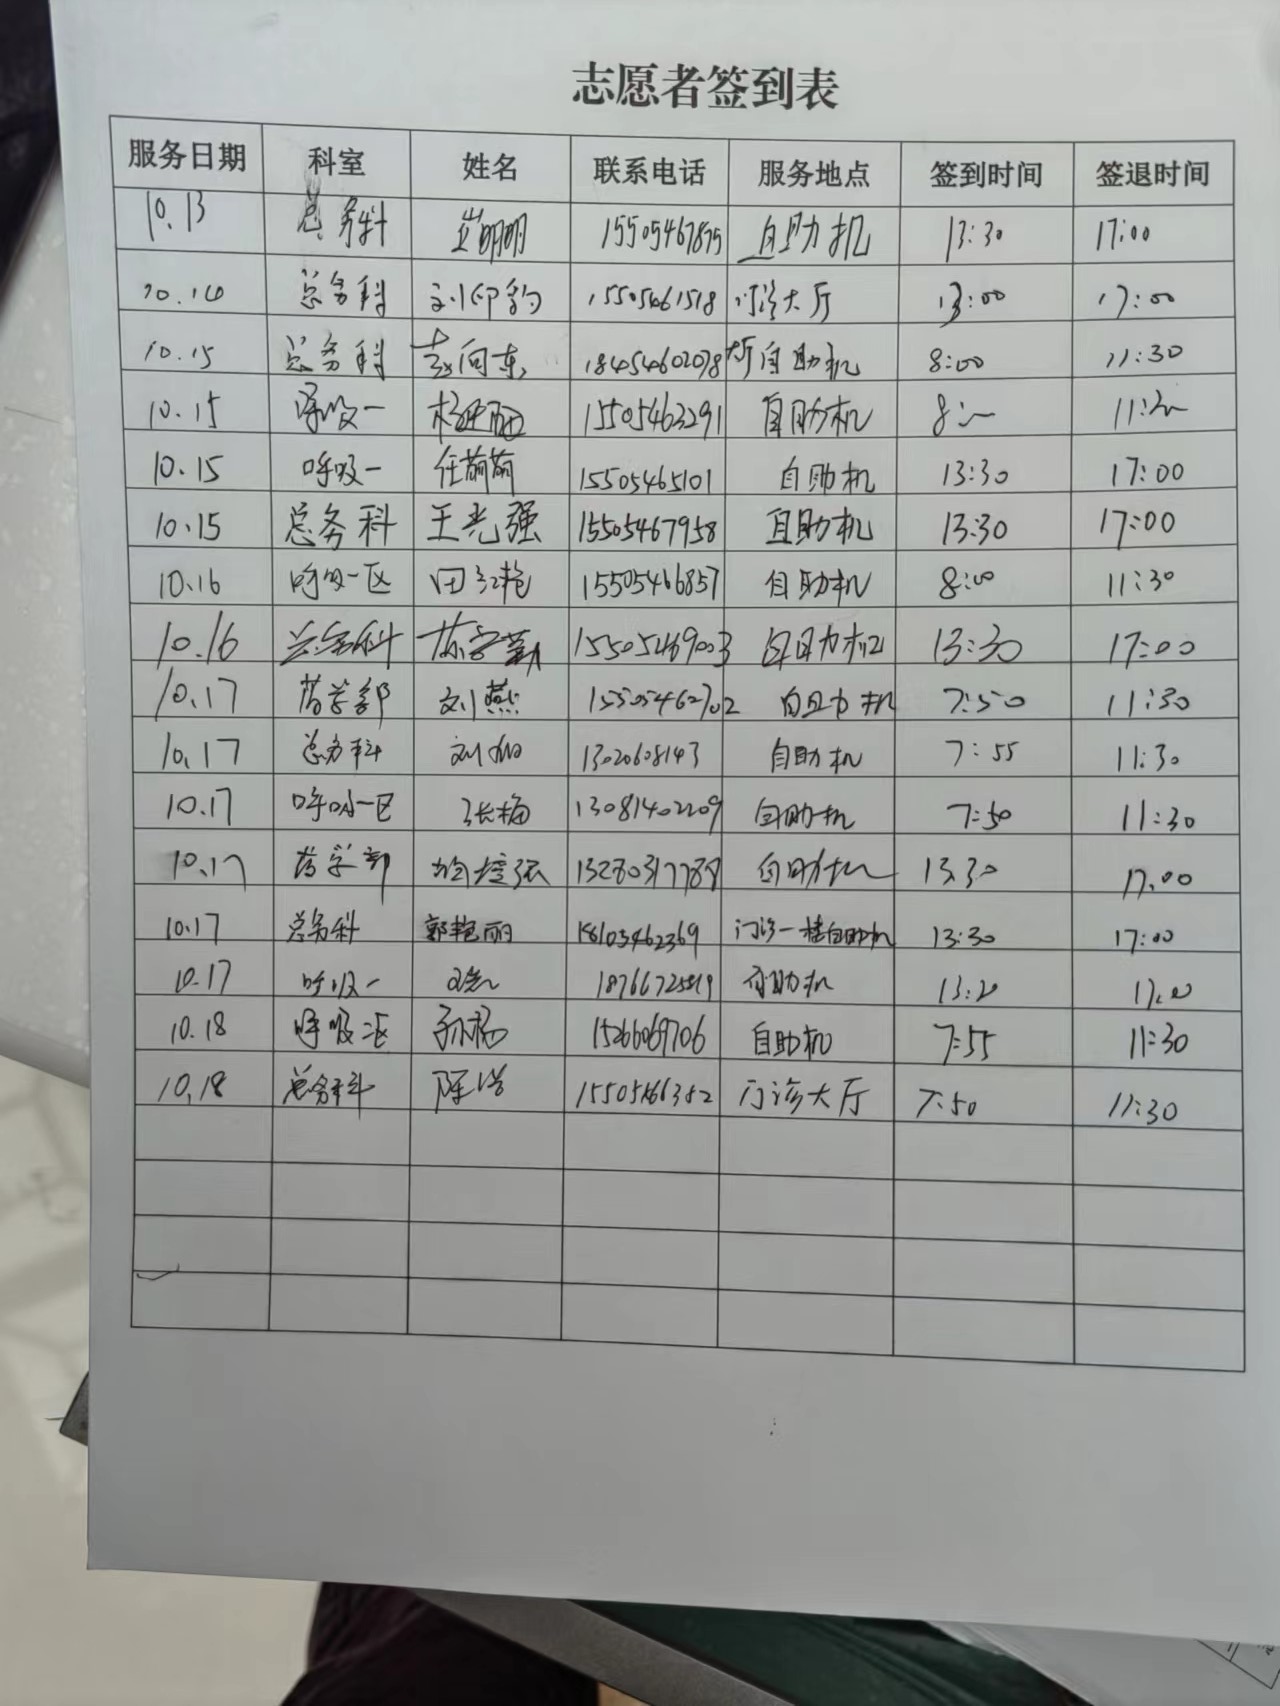 志愿者签到表
服务日期 科室 姓名 联系电话 服务地点 签到时间 签退时间
10.13 总务科 崔明明 15505467875 自助机 13:30 17:00
10.14 总务科 刘印豹 15505461518 门诊大厅 13:00 17:00
10.15 总务科 赵向东 18454602078 大厅自助机 8:00 11:30
10.15 呼吸一 15505463291 自助机 8:00 11:30
10.15 呼吸一 任萌萌 15505465101 自助机 13:30 17:00
10.15 总务科 王光强 15505467958 自助机 13:30 17:00
10.16 呼吸一区 田红艳 15505466857 自助机 8:00 11:30
10.16 总务科 15505469003 自助机 13:30 17:00
10.17 药学部 刘燕 15505462702 自助机 7:50 11:30
10.17 总务科 刘 1302608143 自助机 7:55 11:30
10.17 呼吸一区 张梅 13081402209 自助机 7:50 11:30
10.17 药学部 自助机 13:30 17:00
10.17 总务科 郭艳丽 门诊一楼自助机 13:30 17:00
10.17 呼吸一 自助机 13:20 17:00
10.18 呼吸 孙杨 15266069706 自助机 7:55 11:30
10.18 总务科 陈浩 15505466352 门诊大厅 7:50 11:30